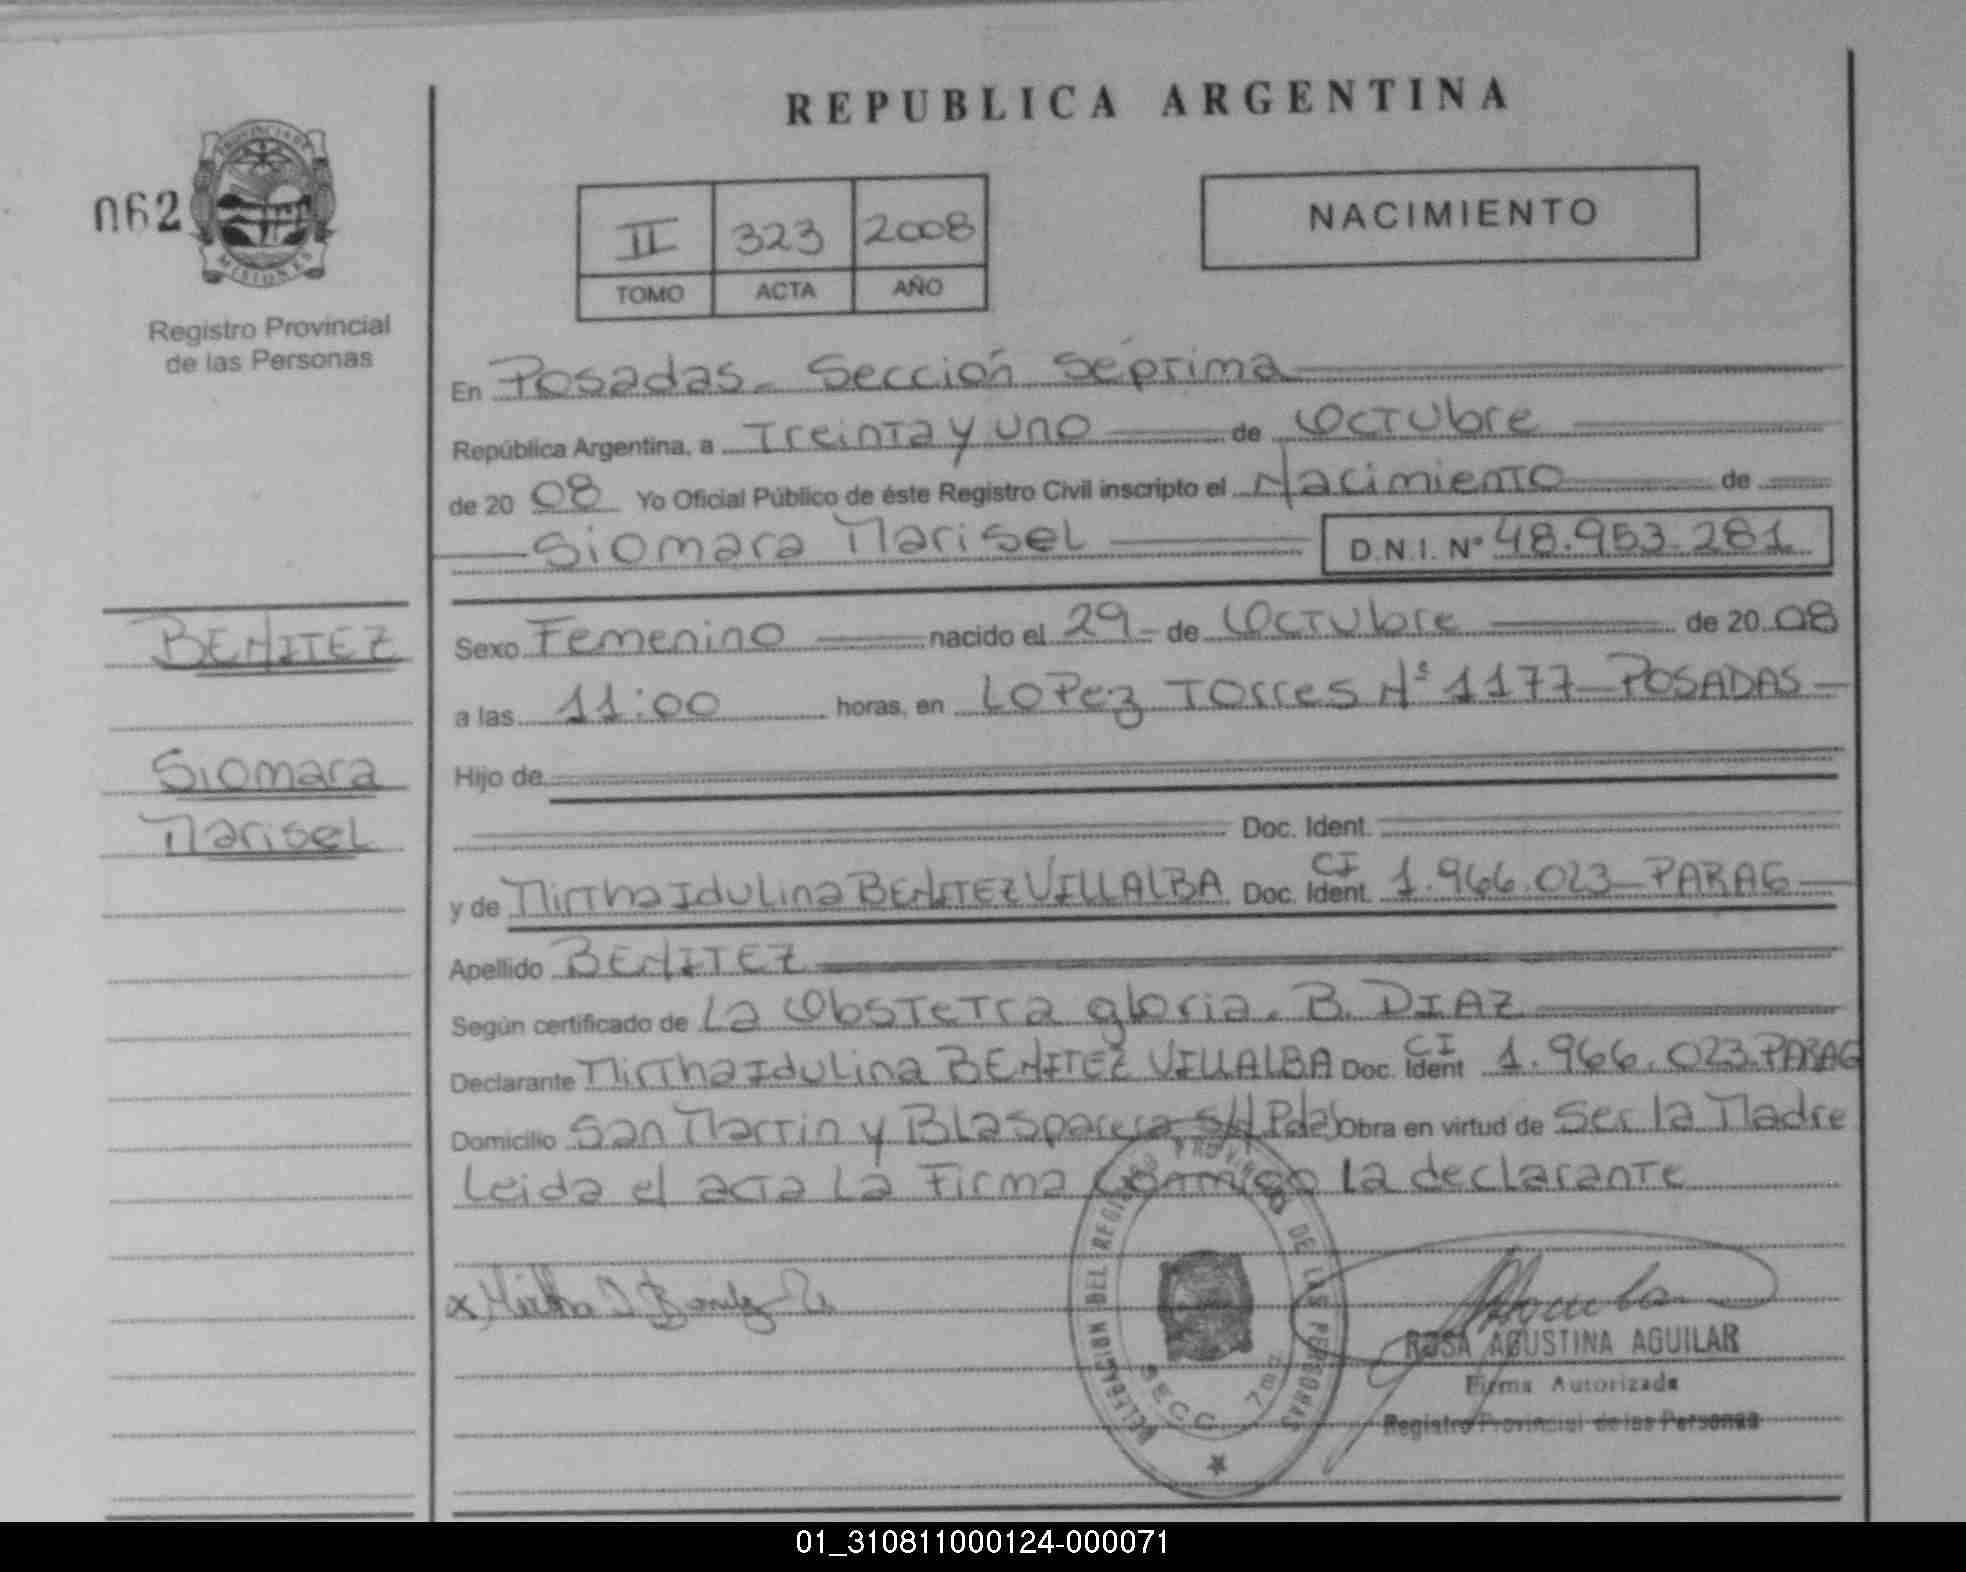 REPUBLICA ARGENTINA
062
PROVINCIA DE
MISIONES
Registro Provincial
de las Personas
II 323 2008
TOMO ACTA AÑO
NACIMIENTO
En Posadas - Sección Séptima
República Argentina, a Treinta y uno de Octubre
de 20 08 Yo Oficial Público de éste Registro Civil inscripto el Nacimiento de
Siomara Marisel D.N.I. N° 48.953.281
BENITEZ
Siomara
Marisel
Sexo Femenino nacido el 29 - de Octubre de 20 08
a las 11:00 horas, en LOPez TOrres N° 1177 - POSADAS
Hijo de
Doc. Ident.
y de Mirtha Idulina BENITEZ VILLALBA Doc. Ident. CI 1.966.023 - PARAG
Apellido BENITEZ
Según certificado de La Obstetra gloria. B. DIAZ
Declarante Mirtha Idulina BENITEZ VILLALBA Doc. Ident CI 1.966.023. PARAG
Domicilio San Martin y Blasparera S/N Pdas Obra en virtud de Ser la Madre
Leida el acta La Firma Conmigo la declarante
x Mirtha I Benitez
DELEGACION DEL REGISTRO PROVINCIAL DE LAS PERSONAS
SECC. 7ma
ROSA AGUSTINA AGUILAR
Firma Autorizada
Registro Provincial de las Personas
01_310811000124-000071